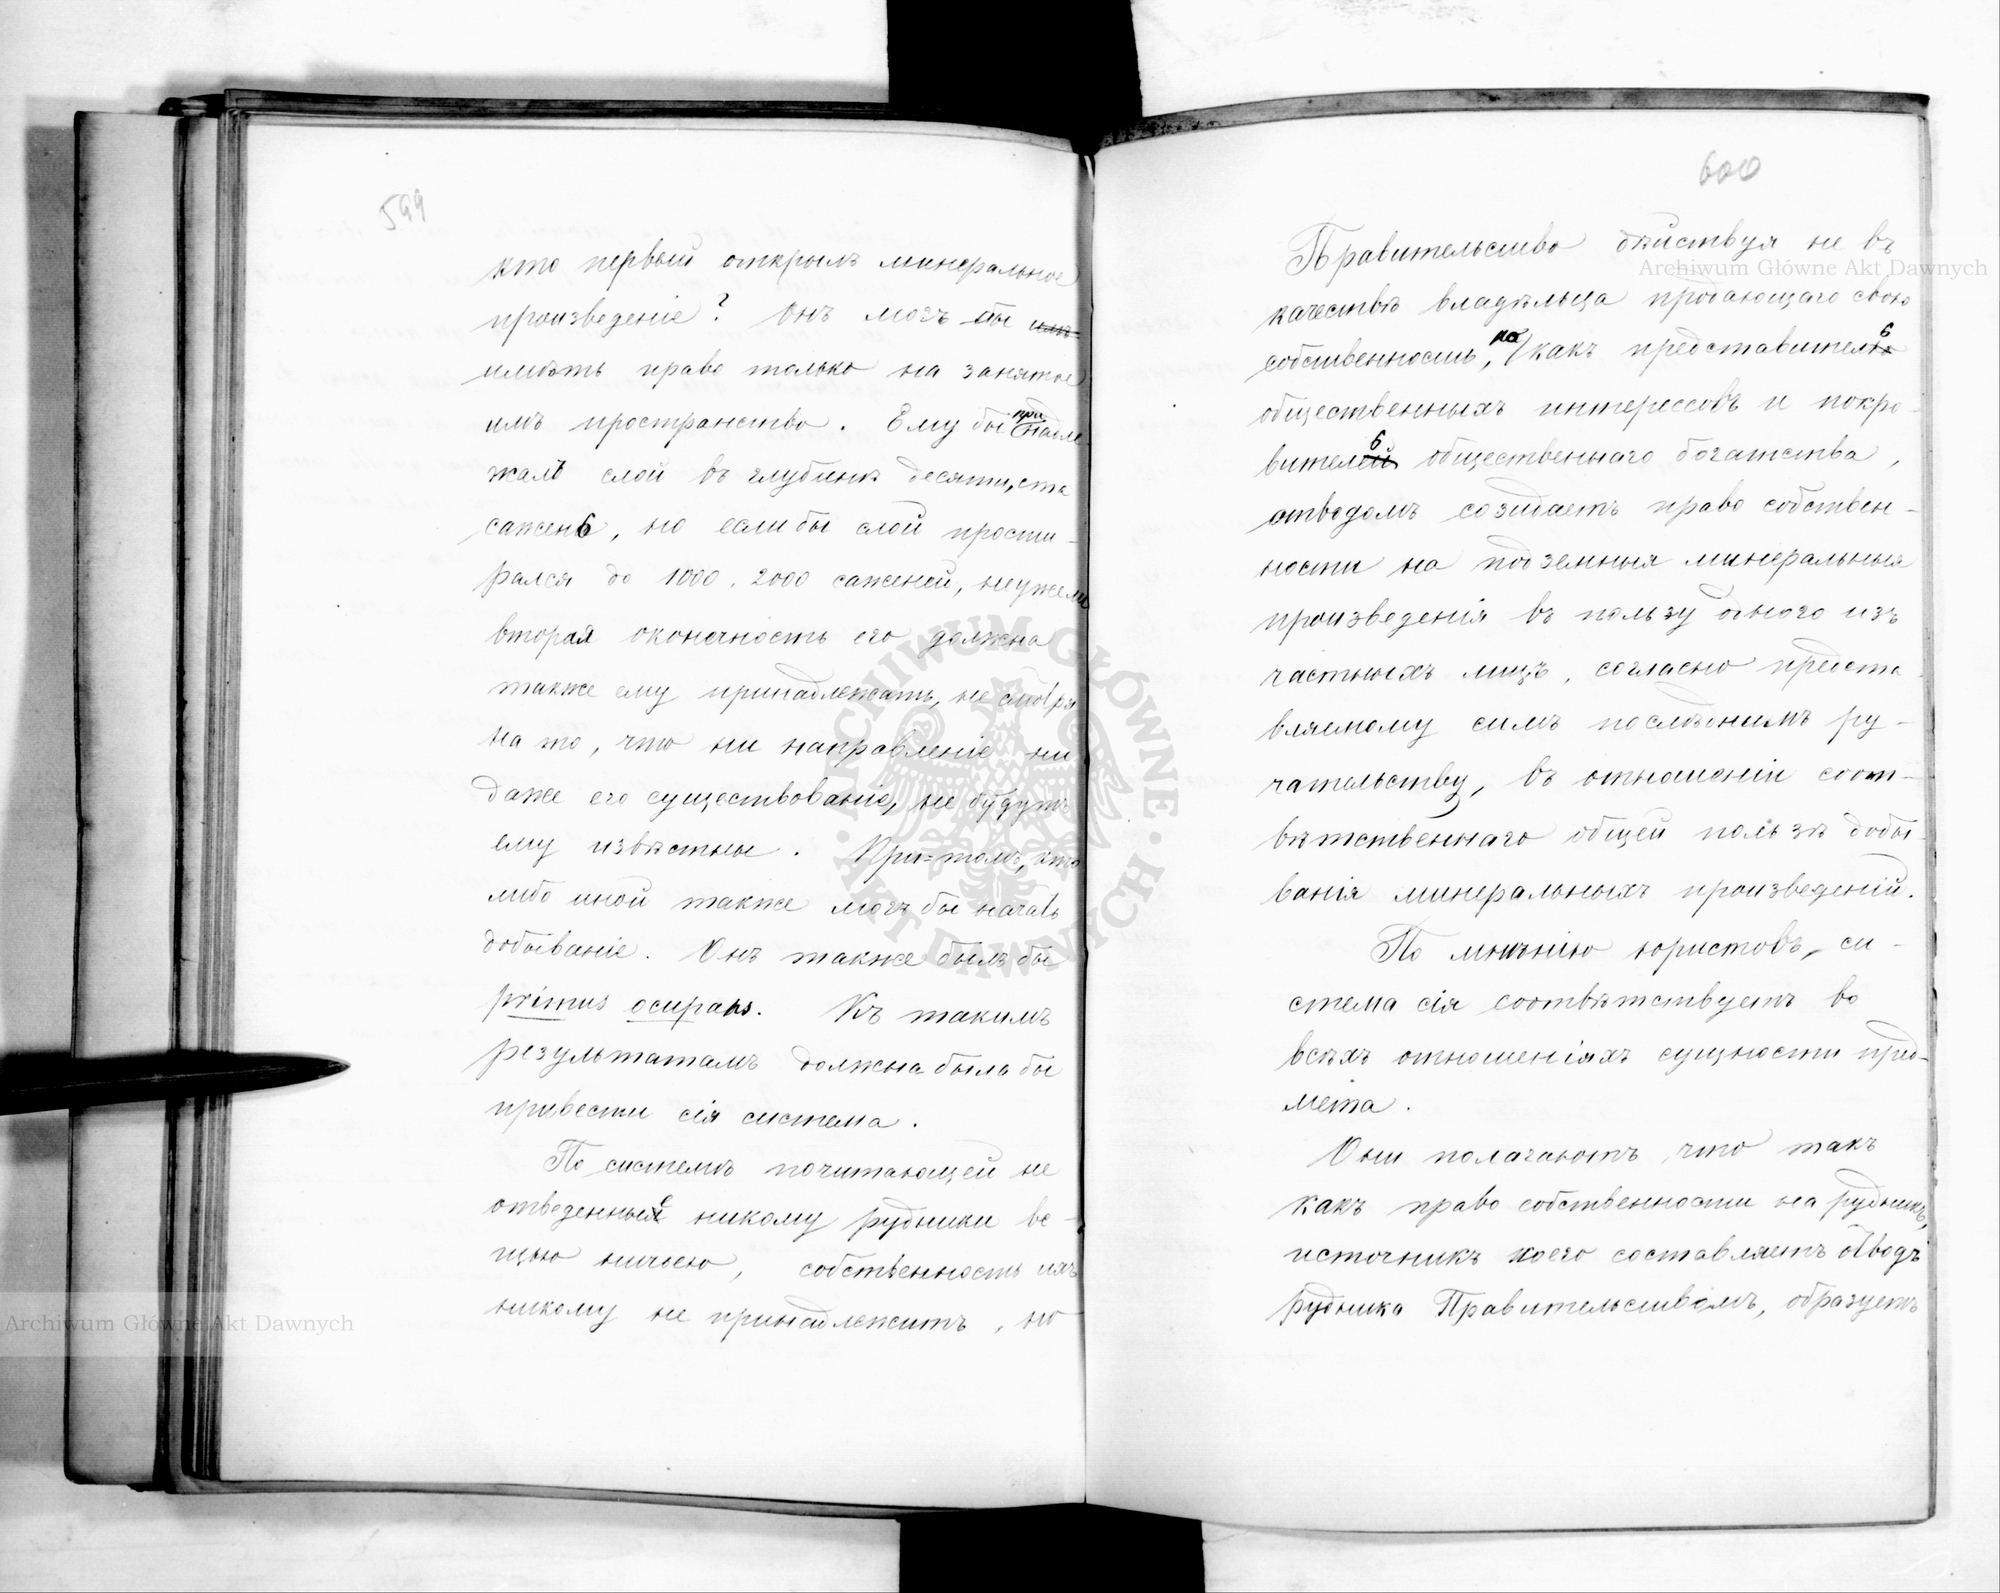 599
кто первый открылъ минеральное
произведеніе? Онъ могъ бы имъ
имѣть право только на занятое
имъ пространство. Ему бы принадле
жалъ слой въ глубинѣ десяти, ста
сажень, но если бы слой прости-
рался до 1000, 2000 саженей, неужели
вторая оконечность его должна
также ему принадлежать, не смотря
на то, что ни направленіе ни
даже его существованіе, не будутъ
ему извѣстны. При-томъ, кто
либо иной также могъ бы начать
добываніе. Онъ также былъ бы
primus ocupans. Къ такимъ
результатамъ должна была бы
привести сія система.
По системѣ почитающей не
отведенные никому рудники ве-
щью ничьею, собственность ихъ
никому не принадлежитъ, но
600
Правительство дѣйствуя не въ
качествѣ владѣльца продающаго свою
собственность, но какъ представитель
общественныхъ интерессовъ и покро-
витель общественнаго богатства,
отводомъ созидаетъ право собствен-
ности на подземныя минеральныя
произведенія въ пользу одного изъ
частныхъ лицъ, согласно предста
вляемому симъ послѣднимъ ру-
чательству, въ отношеніи соот-
вѣтственнаго общей пользѣ добы-
ванія минеральныхъ произведеній.
По мнѣнію юристовъ, си-
стема сія соотвѣтствуетъ во
всѣхъ отношеніяхъ сущности пред-
мета.
Они полагаютъ, что такъ
какъ право собственности на рудникъ,
источникъ коего составляетъ отводъ
рудника Правительствомъ, образуетъ
Archiwum Główne Akt Dawnych
Archiwum Główne Akt Dawnych
ARCHIWUM GŁÓWNE · AKT DAWNYCH ·